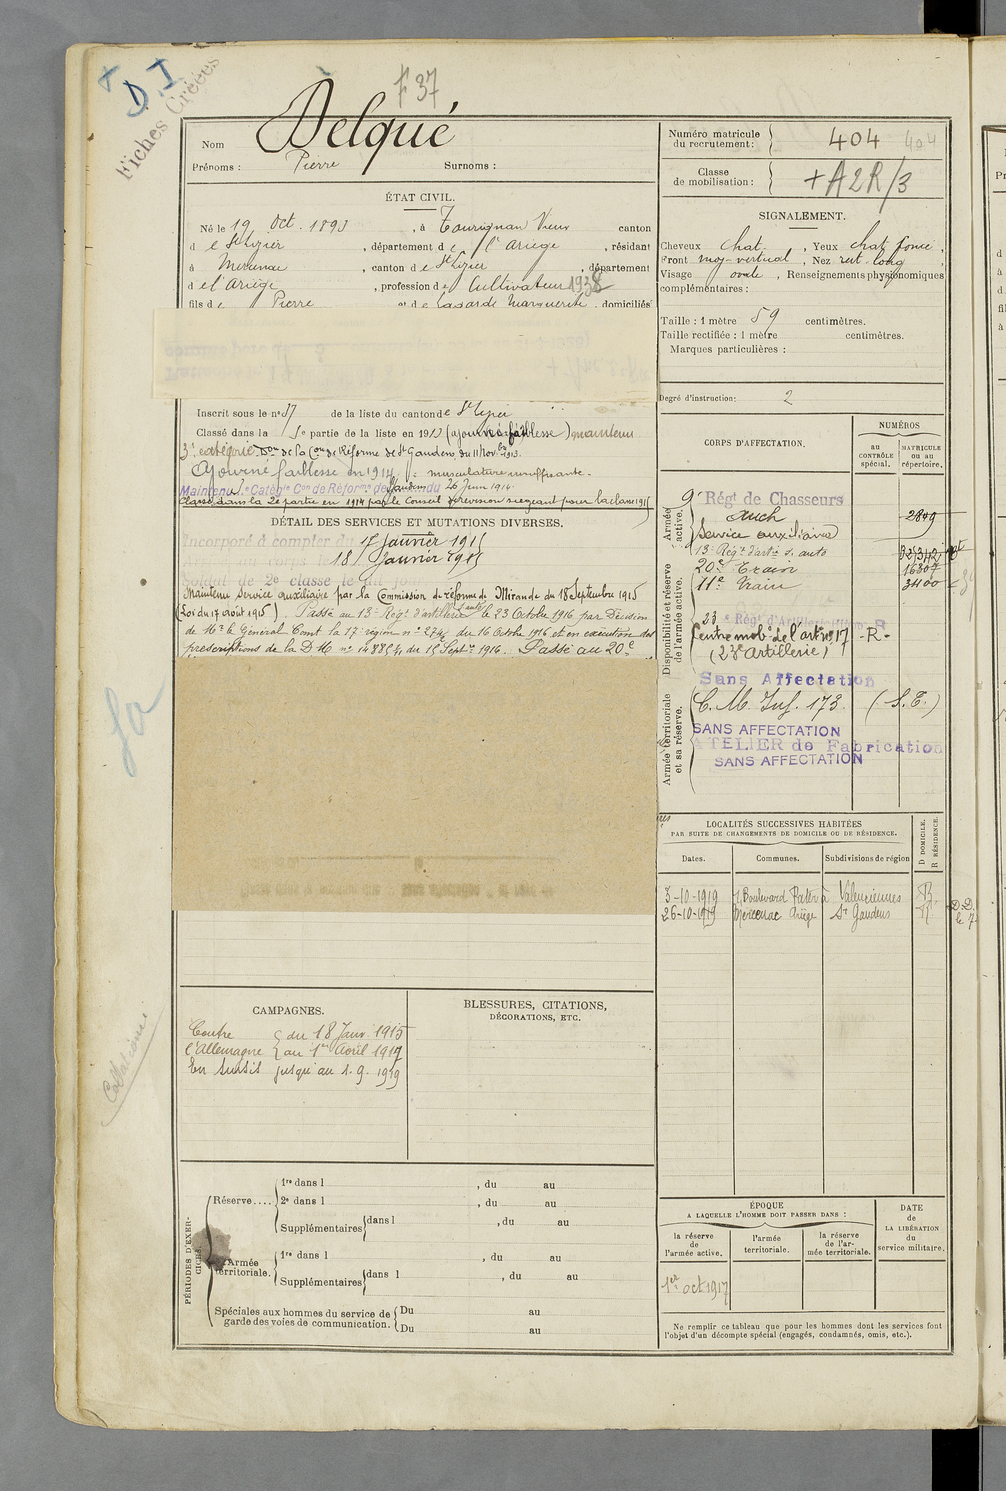 + D.I
Fiches Créées
F 37
Nom Delqué
Prénoms : Pierre Surnoms :
Numéro matricule du recrutement : 404 404
Classe de mobilisation : +A2R/3
ÉTAT CIVIL.
Né le 19 Oct. 1893, à Tourignan Vieux canton
d e St Lizier, département d e l'Ariège, résidant
à Mercenac, canton d e St Lizier, département
d e l'Ariège, profession d e Cultivateur 1938
fils d e Pierre et d e Lagarde Marguerite, domiciliés
SIGNALEMENT.
Cheveux chat., Yeux chat foncé,
Front moy-vertical, Nez rect. long,
Visage ovale, Renseignements physionomiques
complémentaires :
Taille : 1 mètre 59 centimètres.
Taille rectifiée : 1 mètre centimètres.
Marques particulières :
Degré d'instruction : 2
Inscrit sous le n° 57 de la liste du canton de St Lizier
Classé dans la 5e partie de la liste en 1913 (ajourné faiblesse) maintenu
3e catégorie Don de la Con de Réforme de St Gaudens du 11 Nov. 1913.
Ajourné faiblesse en 1914. musculature insuffisante.
Maintenu Catégie Con de Réforme de St Gaudens du 26 Juin 1914
Classé dans la 2e partie en 1914 par le Conseil de révision siégeant pour la classe 1915
DÉTAIL DES SERVICES ET MUTATIONS DIVERSES.
Incorporé à compter du 17 Janvier 1915
corps le 18 Janvier 1915
Soldat de 2e classe le dit jour
Maintenu service auxiliaire par la Commission de réforme de Mirande du 18 Septembre 1915
(Loi du 17 août 1915). Passé au 13e Régt d'artillerie le 23 Octobre 1916 par Décision
de Mr le Général Comt la 17e région n° du 16 Octobre 1916 et en exécution des
prescriptions de la D M n° du 15 Septre 1916. Passé au 20e
CORPS D'AFFECTATION.
NUMÉROS
au CONTRÔLE spécial.
MATRICULE ou au répertoire.
Armée active.
9e Régt de Chasseurs
Auch 2849
Service auxiliaire
Disponibilité et réserve de l'armée active.
13e Régt d'artie s. auto
20e Train 16307
11e Train 3400
23e Régt d'Artillerie R
Centre mobe de l'art n° 17 -R-
(23e Artillerie)
Sans Affectation
Armée territoriale et sa réserve.
C. M. Inf. 173. (S.E.)
SANS AFFECTATION
ATELIER de Fabrication
SANS AFFECTATION
LOCALITÉS SUCCESSIVES HABITÉES
PAR SUITE DE CHANGEMENTS DE DOMICILE OU DE RÉSIDENCE.
Dates. Communes. Subdivisions de région D DOMICILE. R RÉSIDENCE.
3-10-1919 Boulevard Pater à Valenciennes R
26-10-1919 Mercenac Ariège St Gaudens R
D.D.
le 7
CAMPAGNES.
Contre l'Allemagne { du 18 Janv. 1915
au 1er Avril 1917
En sursis jusqu'au 1.9.1919
BLESSURES, CITATIONS,
DÉCORATIONS, ETC.
PÉRIODES D'EXERCICES.
Réserve.... 1re dans l , du au
2e dans l , du au
Supplémentaires dans l , du au
Armée territoriale. 1re dans l , du au
Supplémentaires dans l , du au
Spéciales aux hommes du service de garde des voies de communication. Du au
Du au
ÉPOQUE
A LAQUELLE L'HOMME DOIT PASSER DANS :
la réserve de l'armée active.
l'armée territoriale.
la réserve de l'armée territoriale.
DATE de LA LIBÉRATION du service militaire.
1er oct 1917
Ne remplir ce tableau que pour les hommes dont les services font
l'objet d'un décompte spécial (engagés, condamnés, omis, etc.).